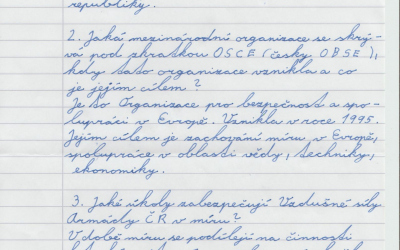 republiky.
2. Jaká mezinárodní organizace se skrý-
vá pod zkratkou OSCE (česky OBSE),
kdy tato organizace vznikla a co
je jejím cílem?
Je to Organizace pro bezpečnost a spo-
lupráci v Evropě. Vznikla v roce 1995.
Jejím cílem je zachování míru v Evropě,
spolupráce v oblasti vědy, techniky,
ekonomiky.
3. Jaké úkoly zabezpečují Vzdušné síly
Armády ČR v míru?
V době míru se podílejí na činnosti